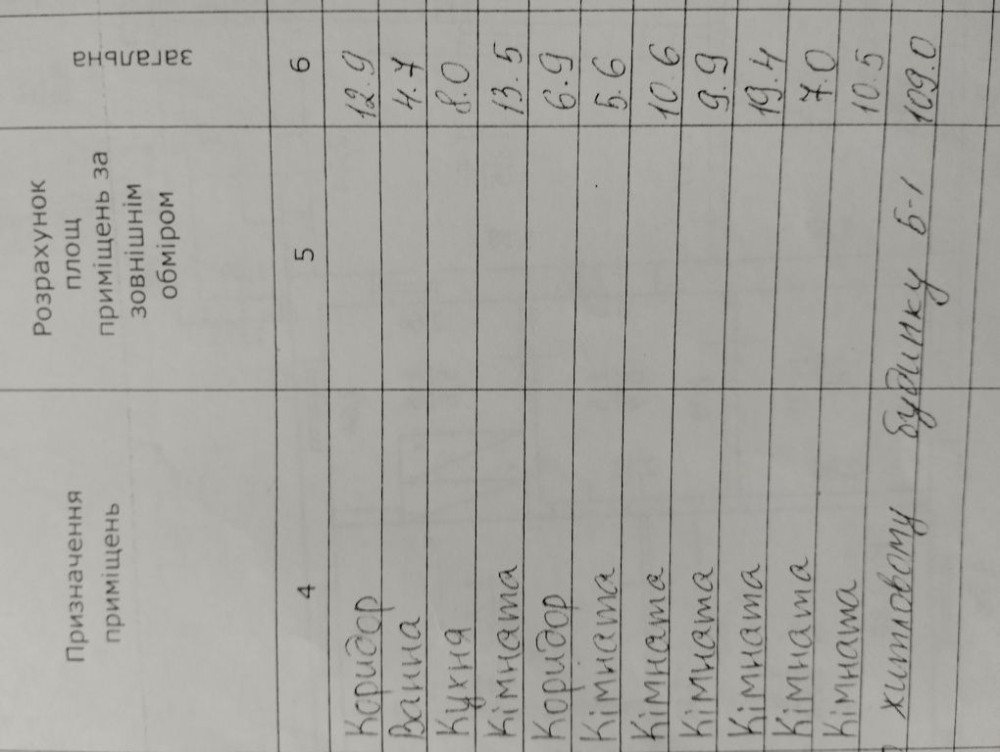 Призначення
приміщень
Розрахунок
площ
приміщень за
зовнішнім
обміром
загальна
4 5 6
Коридор 12.9
Ванна 4.7
Кухня 8.0
Кімната 13.5
Коридор 6.9
Кімната 5.6
Кімната 10.6
Кімната 9.9
Кімната 19.4
Кімната 7.0
Кімната 10.5
житловому будинку Б-1 109.0